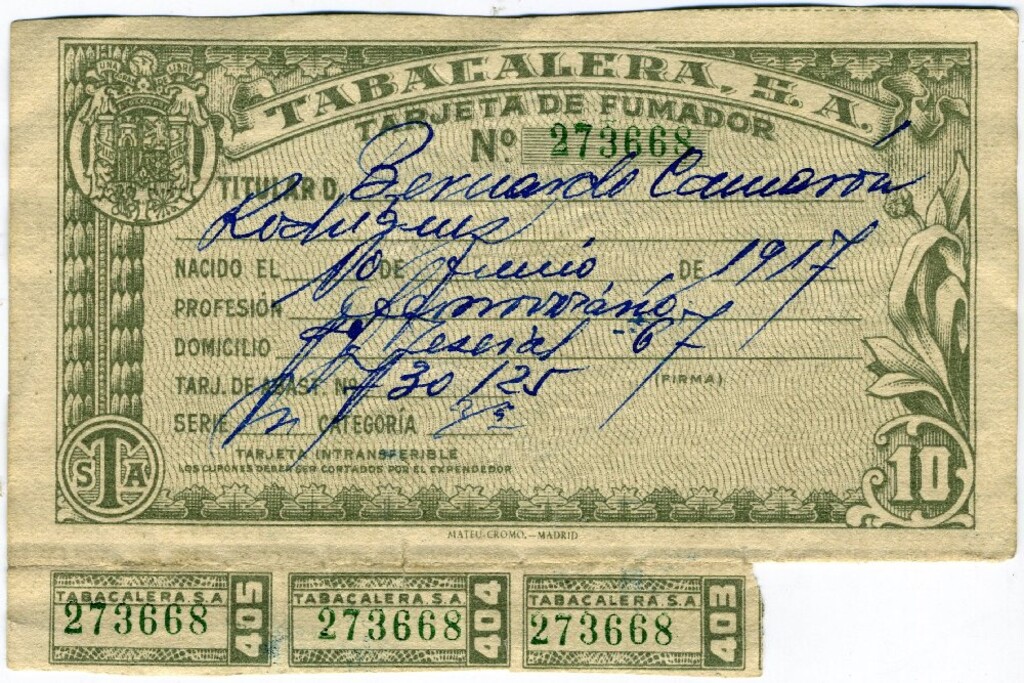 TABACALERA, S. A.
TARJETA DE FUMADOR
Nº. 273668
TITULAR D. Bernardo Camarón
Rodríguez
NACIDO EL 10 DE Junio DE 1917
PROFESIÓN
DOMICILIO 67
TARJ. DE ABAST. Nº 730125
(FIRMA)
SERIE CATEGORÍA 3ª
TARJETA INTRANSFERIBLE
LOS CUPONES DEBEN SER CORTADOS POR EL EXPENDEDOR
S T A
10
MATEU-CROMO.—MADRID
TABACALERA S.A 273668 405
TABACALERA S.A 273668 404
TABACALERA S.A 273668 403